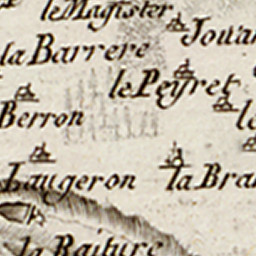 le Magister
Joua
la Barrere
le Peyret
Berron
le
Laugeron
la Bra
la Baiture